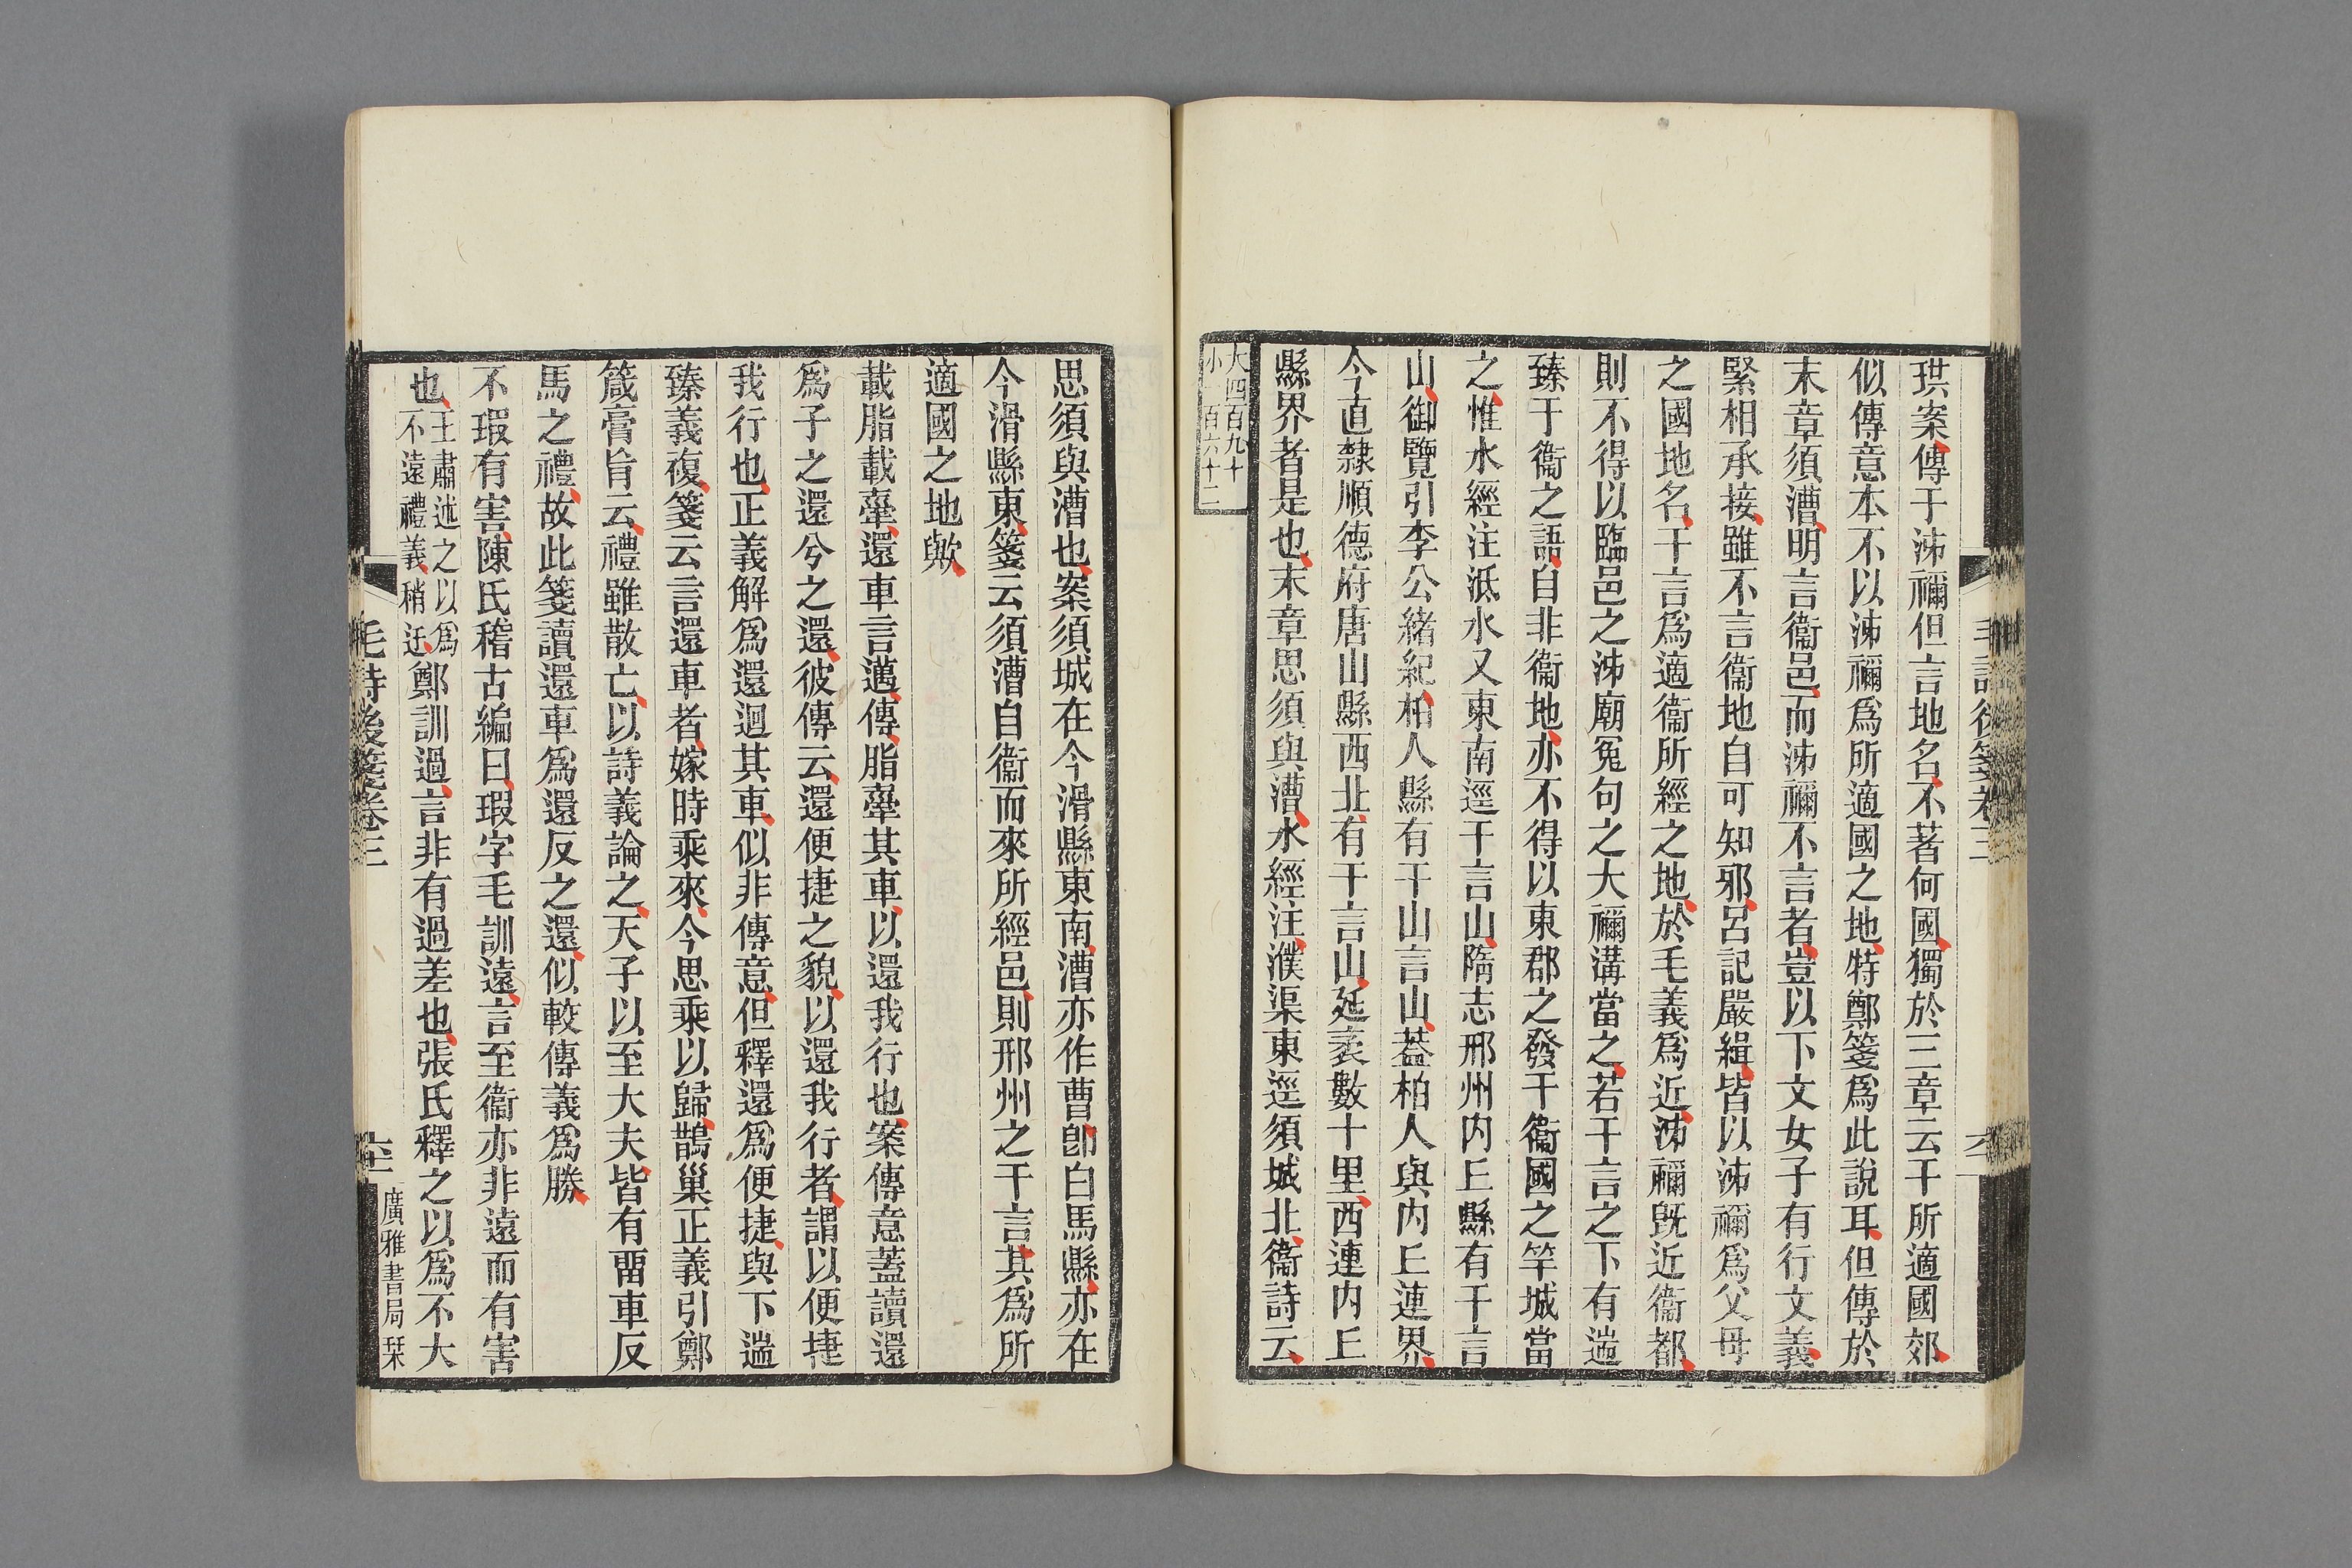 珙案傳于泲禰但言地名不著何國獨於三章云干所適國郊
似傳意本不以泲禰爲所適國之地特鄭箋爲此說耳但傳於
末章須漕明言衞邑而泲禰不言者豈以下文女子有行文義
緊相承接雖不言衞地自可知邪呂記嚴緝皆以泲禰爲父母
之國地名干言爲適衞所經之地於毛義爲近泲禰旣近衞都
則不得以臨邑之泲廟冤句之大禰溝當之若干言之下有遄
臻于衞之語自非衞地亦不得以東郡之發干衞國之竿城當
之惟水經注泜水又東南逕干言山隋志邢州内丘縣有干言
山御覽引李公緒紀柏人縣有干山言山葢柏人與内丘連界
今直隸順德府唐山縣西北有干言山延袤數十里西連内丘
縣界者是也末章思須與漕水經注濮渠東逕須城北衞詩云
大四百九十
小一百六十二
毛詩後箋卷三
思須與漕也案須城在今滑縣東南漕亦作曹卽白馬縣亦在
今滑縣東箋云須漕自衞而來所經邑則邢州之干言其爲所
適國之地歟
載脂載舝還車言邁傳脂舝其車以還我行也案傳意蓋讀還
爲子之還兮之還彼傳云還便捷之貌以還我行者謂以便捷
我行也正義解爲還迴其車似非傳意但釋還爲便捷與下遄
臻義複箋云言還車者嫁時乘來今思乘以歸鵲巢正義引鄭
箴膏肓云禮雖散亡以詩義論之天子以至大夫皆有畱車反
馬之禮故此箋讀還車爲還反之還似較傳義爲勝
不瑕有害陳氏稽古編曰瑕字毛訓遠言至衞亦非遠而有害
也王肅述之以爲不遠禮義稍迂鄭訓過言非有過差也張氏釋之以爲不大
毛詩後箋卷三
六十二
廣雅書局栞